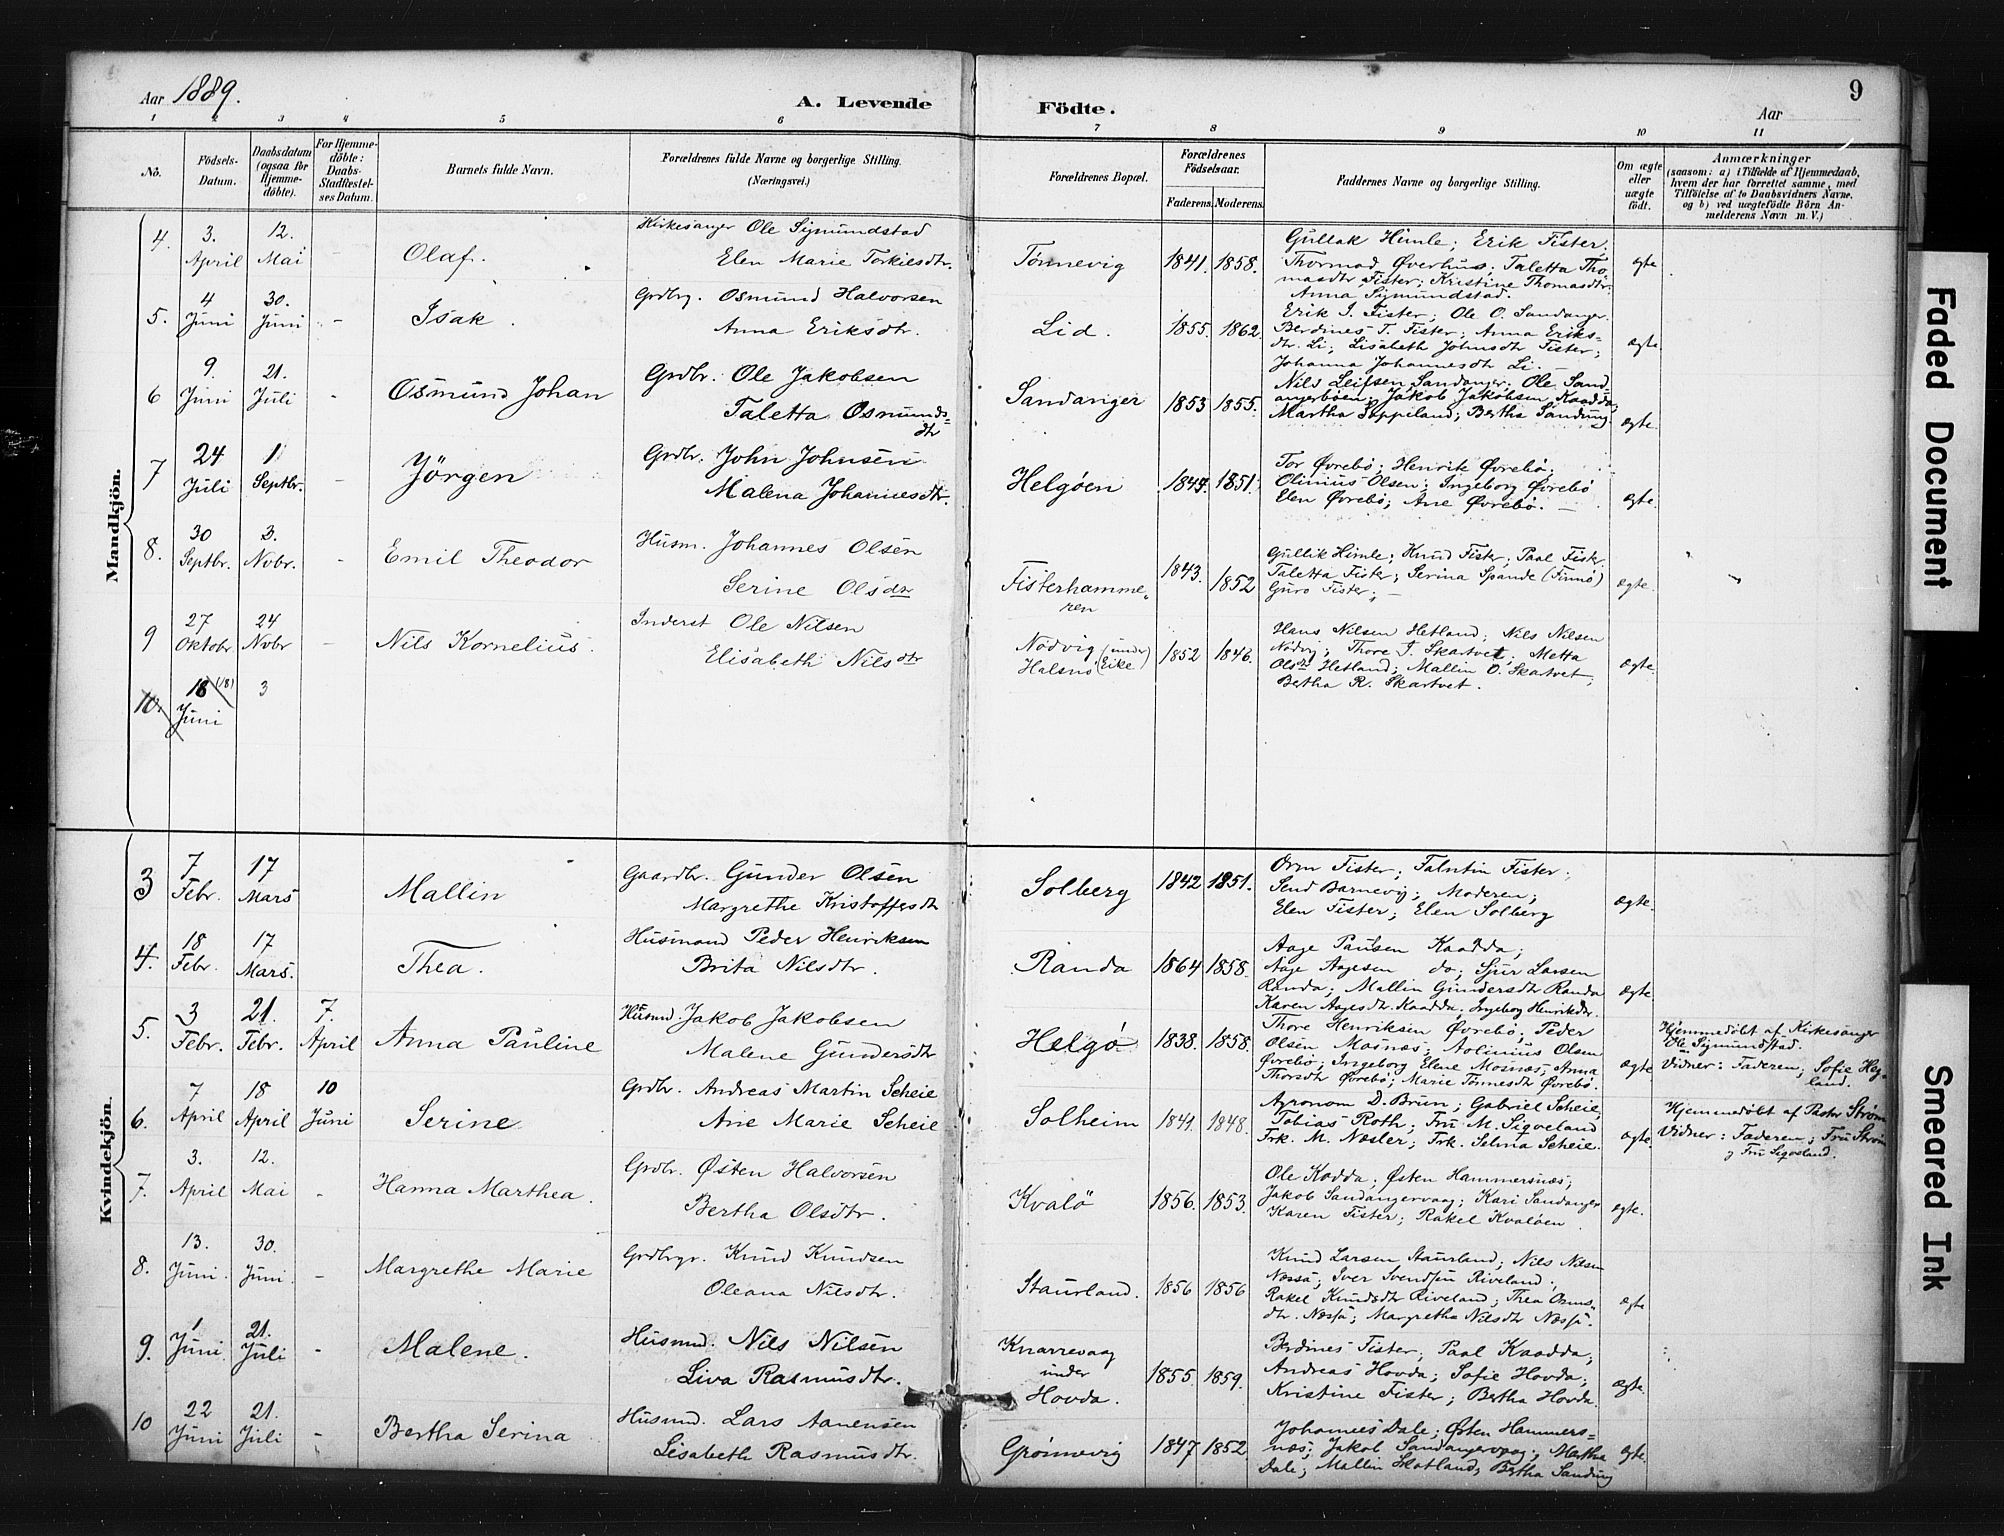 Aar 1889. A. Levende Födte. Aar 9
1 2 3 4 5 6 7 8 9 10 11
No. Födsels-Datum. Daabsdatum (ogsaa for Hjemmedöbte). For Hjemmedöbte: Daabs-Stadfæstelses Datum. Barnets fulde Navn. Forældrenes fulde Navne og borgerlige Stilling. (Næringsvei.) Forældrenes Bopæl. Forældrenes Födselsaar. Faderens. Moderens. Faddernes Navne og borgerlige Stilling. Om ægte eller uægte födt. Anmærkninger (saasom: a) i Tilfælde af Hjemmedaab, hvem der har forrettet samme, med Tilföielse af to Daabsvidners Navne, og b) ved uægtefödte Börn Anmelderens Navn m. V.)
Mandkjön.
4. 3. April 12. Mai - Olaf. Kirkesanger Ole Sigmundstad
Elen Marie Torkilsdtr. Tønnevig 1841. 1858. Gullak Himle; Erik Fister;
Thormod Øverhus; Taletta Tho-
masdtr Fister; Kristine Thomasdtr.
Anna Sigmundstad. ægte
5. 4 Juni 30. Juni - Isak. Grdbrg. Osmund Halvorsen
Anna Eriksdtr. Lid. 1855. 1862. Erik I. Fister; Ole O. Sandanger.
Berdines T. Fister; Anna Eriks-
dtr. Li; Lisabeth Johnsdtr Fister;
Johanna Johannesdtr Li. - ægte.
6 9. Juni 21. Juli - Osmund Johan Grdbr. Ole Jakobsen
Taletta Osmunds-
dtr Sandanger 1853 1855. Nils Leifsen Sandanger; Ole Sand-
angerbøen; Jakob Jakobsen Kaadda;
Martha Seppiland; Bertha Sandung. ægte.
7 24 Juli 1 Septbr. - Jörgen Grdbr. John Johnsen
Malena Johannesdtr. Helgøen 1851. Tor Øvrebø; Henrik Øvrebø;
Olinius Olsen; Ingeborg Øvrebø
Elen Øvrebø; Ane Øvrebø. - ægte.
8. 30 Septbr. 3. Novbr. - Emil Theodor Husm. Johannes Olsen
Serine Olsdtr Fisterhamme-
ren 1843. 1852 Gullik Himle; Knud Fister; Paal Fister
Taletta Fister; Serina Spande (Finnø)
Guro Fister; - ægte.
9 27 Oktobr. 24 Novbr - Nils Kornelius. Inderst Ole Nilsen
Elisabeth Nilsdtr Nödvig (under
Halsnø (Eike) 1852 1846. Hans Nilsen Hetland; Nils Nilsen
Nødvig; Thore J. Skartvet; Metta
Olsdtr Hetland; Mallin O. Skartvet;
Bertha R. Skartvet. ægte.
10. 18 (18) Juni 3
Kvindekjön.
3 7 Febr. 17 Mars Mallin Gaardbr. Gunder Olsen
Margrethe Kristoffersdtr Solberg 1842 1851. Orm Fister; Talntin Fister;
Send Barnevig; Moderen;
Elen Fister; Elen Solberg ægte.
4. 18 Febr. 17 Mars. Thea. Husmand Peder Henriksen
Brita Nilsdtr. Randa 1864 1858. Aage Paulsen Kaadda;
Aage Aagesen do; Sjur Larsen
Randa; Mallin Gundersdtr Randa
Karen Aagesdtr Kaadda; Ingeborg Henriksdtr. ægte.
5. 3 Febr. 21. Febr. 7. April Anna Pauline Husmd. Jakob Jakobsen
Malene Gundersdtr Helgø 1838. 1858. Thore Henriksen Øvrebø; Peder
Olsen Mosnæs; Aolinius Olsen
Øvrebø; Ingeborg Elene Mosnæs; Anna
Thorsdtr Øvrebø; Marie Tönnesdtr Øvrebø. ægte Hjemmedøbt af Kirkesanger
Ole Sigmundstad.
Vidner: Faderen; Sofie Hey-
land.
6. 7 April 18 April 10 Juni Serine Grdbr. Andreas Martin Scheie
Ane Marie Scheie Solheim 1848. Agronom D. Brun; Gabriel Scheie,
Tobias Roth; Fru M. Sigveland
Frk. M. Næsler; Frk. Selma Scheie. ægte. Hjemmedøbt af Pastor Strøm
Vidner: Faderen; Fru Strøm
og Fru Sigveland.
7. 3. April 12. Mai - Hanna Marthea. Grdbr. Østen Halvorsen
Bertha Olsdtr. Kvalö 1856. 1853. Ole Kadda; Østen Hammersnæs;
Jakob Sandangervaag; Kari Sandanger
Karen Fister; Rakel Kvaløen ægte.
8. 13. Juni. 30. Juni. - Margrethe Marie Grdbrgr. Knud Knudsen
Oleana Nilsdtr. Staurland. 1856 1856 Knud Larsen Staurland; Nils Nilsen
Næssø; Iver Svendsen Riveland;
Rakel Knudsdtr Riveland; Thea Orms-
dtr. Næssø; Margretha Nilsdtr Næssø. ægte
9. 1 Juni 21. Juli - Malene. Husmd. Nils Nilsen
Liva Rasmusdtr. Knarrevaag
under
Hovda. 1855. 1859. Berdines Fister; Paal Kaadda;
Andreas Hovda; Sofie Hovda;
Kristine Fister; Bertha Hovda. ægte.
10 22 Juni 21. Juli - Bertha Serina Husmd. Lars Aanensen
Lisabeth Rasmusdtr. Grönnevig 1847 1852. Johannes Dale; Østen Hammers-
næs; Jakob Sandangervaag; Martha
Dale; Mallin Skotland; Bertha Sandung ægte.
Faded Document
Smeared Ink